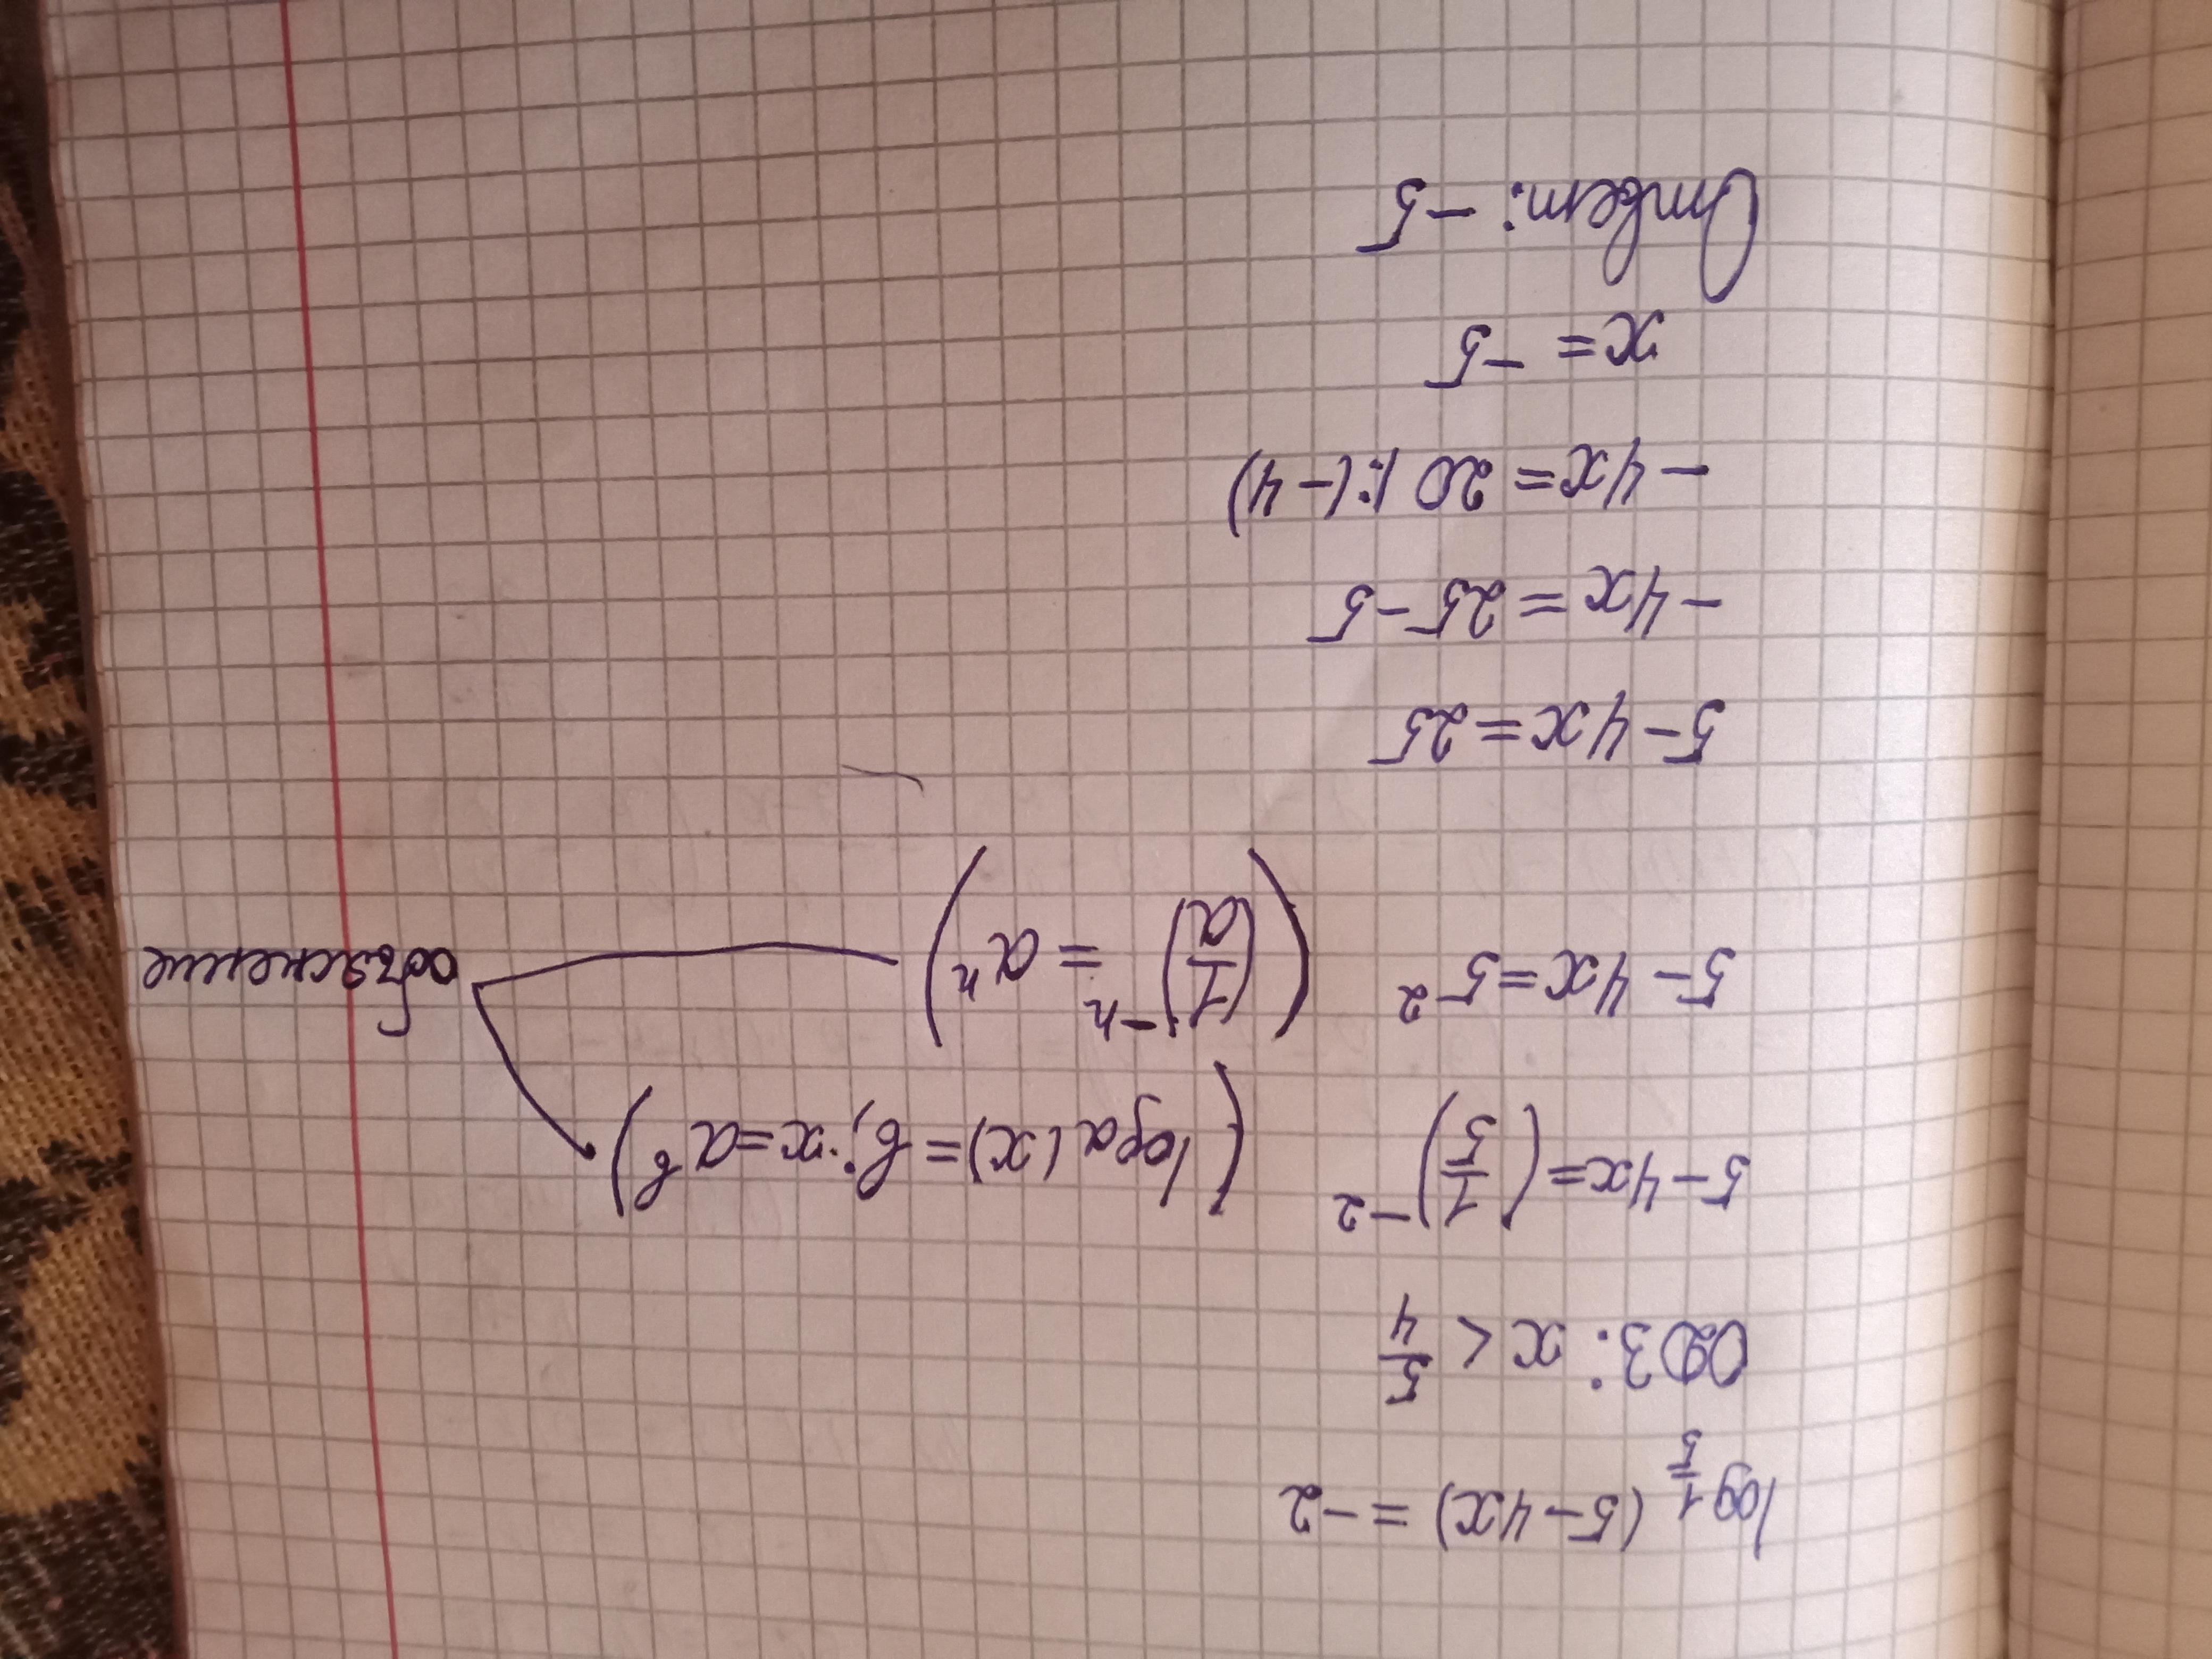 log 1/5 (5-4x) = -2
ОДЗ: x < 5/4
5-4x=(1/5)^-2 (log a (x)=b; x=a^b)
5-4x=5^2 ((1/a)^-n = a^n) объяснение
5-4x=25
-4x=25-5
-4x=20 |:(-4)
x= -5
Ответ: -5